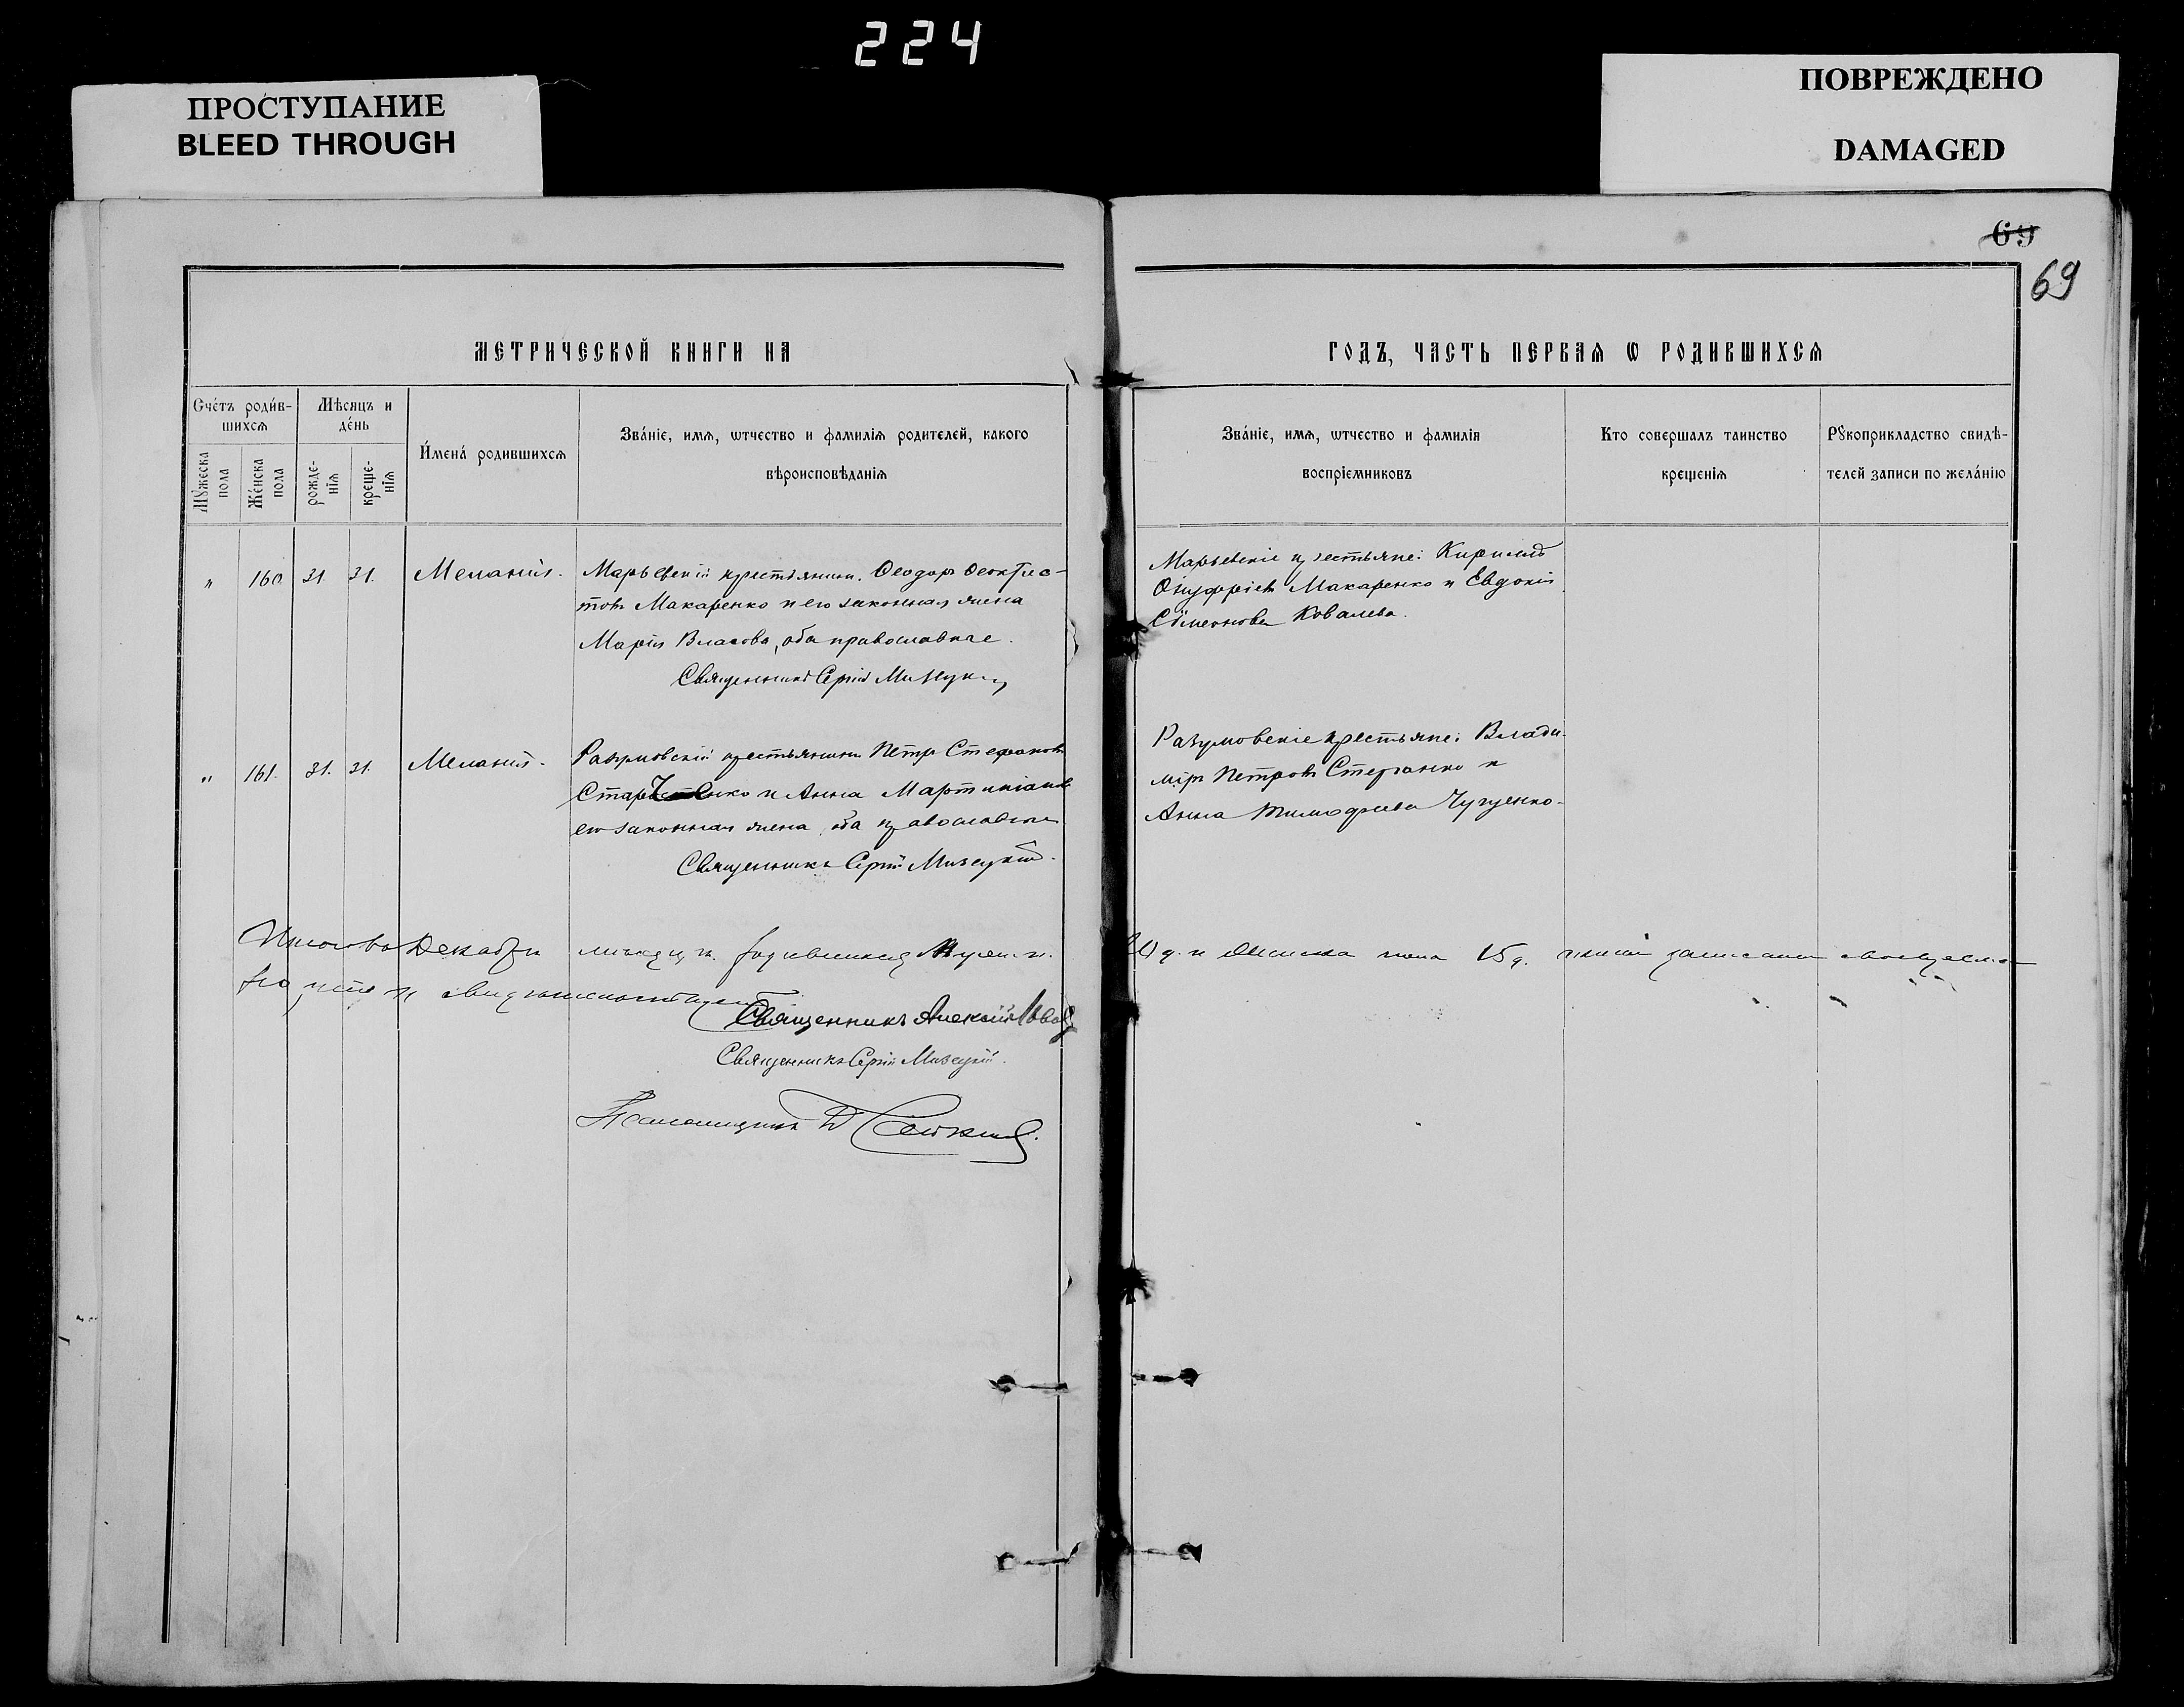 224
ПРОСТУПАНИЕ
BLEED THROUGH
ПОВРЕЖДЕНО
DAMAGED
69
69
МЕТРИЧЕСКОЙ КНИГИ НА
ГОДЪ, ЧАСТЬ ПЕРВАѦ Ѡ РОДИВШИХСѦ
Сче́тъ роди́в-
шихсѧ
Мѣсяцъ и
де́нь
Мꙋжеска
пола
Же́нска
пола
рожде-
нїѧ
креще-
нїѧ
И́мена́ родившихсѧ
Зва́нїе, имѧ, ѿтчество и фамилїѧ родителей, какого
вѣроисповѣданїѧ
Зва́нїе, имѧ, ѿтчество и фамилїѧ
воспрїемниковъ
Кто совершалъ таинство
крещенїѧ
Рꙋкоприкладство свидѣ-
телей записи по жела́нїю
" 160. 31. 31. Меланія.
Марьевскій крестьянинъ Ѳеодоръ Ѳеоктис-
товъ Макаренко и его законная жена
Марія Власова, оба православные.
Священникъ Сергій Мизецкій
Марьевскіе крестьяне: Кириллъ
Онуфріевъ Макаренко и Евдокія
Сѵмеонова Ковалева.
" 161. 31. 31. Меланія.
Разумовскій крестьянинъ Петръ Стефановъ
Анна Мартиніанова
его законная жена, оба православные
Священникъ Сергій Мизецкій.
Разумовскіе крестьяне: Влади-
міръ Петровъ и
Анна Тимофеева
Итого въ Декабрѣ мѣсяцѣ родившихся Мужск. п.
10 д. и Женска пола 15 д.
Священникъ Алексій
Священникъ Сергій Мизецкій.
Псаломщикъ